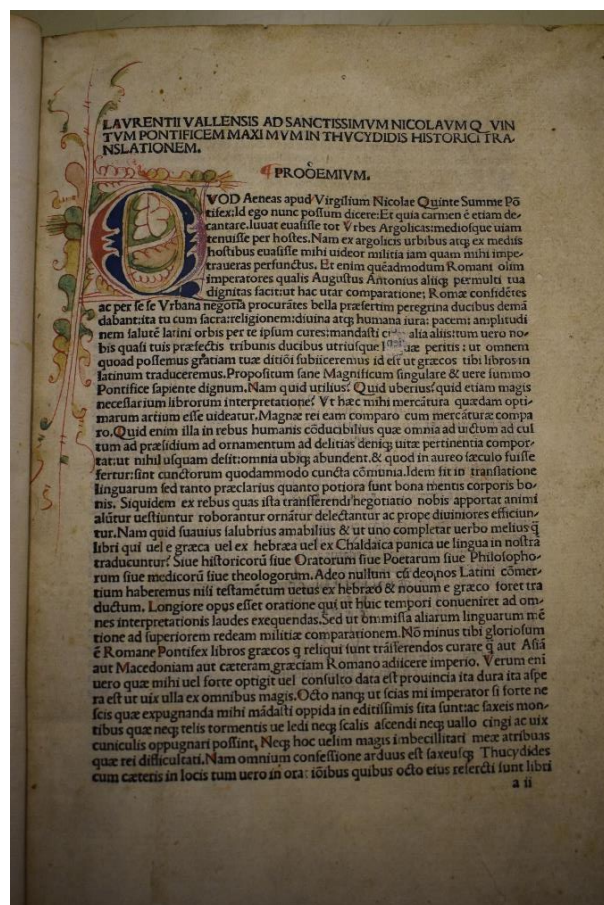 LAVRENTII VALLENSIS AD SANCTISSIMVM NICOLAVM Q VIN
TVM PONTIFICEM MAXIMVM IN THVCYDIDIS HISTORICI TRA,
NSLATIONEM.
¶PROOEMIVM.
QVOD Aeneas apud Virgilium Nicolae Quinte Summe Põ
tifex: Id ego nunc possum dicere: Et quia carmen ẽ etiam de,
cantare. Iuuat euasisse tot Vrbes Argolicas: mediosque uiam
tenuisse per hostes. Nam ex argolicis urbibus atq; ex mediis
hostibus euasisse mihi uideor militia iam quam mihi impe,
traueras perfunctus. Et enim quẽadmodum Romani olim
imperatores qualis Augustus Antonius aliiq; permulti tua
dignitas facit: ut hac utar comparatione: Romæ considẽtes
ac per se se Vrbana negotia procurãtes bella præsertim peregrina ducibus demã
dabant: ita tu cum sacra: religionem: diuina atq; humana iura: pacem: amplitudi
nem salutẽ latini orbis per te ipsum cures: mandasti alia aliis: tum uero no,
bis quasi tuis præfectis tribunis ducibus utriusque peritis: ut omnem
quoad possemus gratiam tuæ ditiõi subiiceremus id est ut græcos tibi libros in
latinum traduceremus. Propositum sane Magnificum singulare & uere summo
Pontifice sapiente dignum. Nam quid utilius? Quid uberius? quid etiam magis
necessarium librorum interpretatione? Vt hæc mihi mercatura quædam opti,
marum artium esse uideatur. Magnæ rei eam comparo cum mercaturæ compa
ro. Quid enim illa in rebus humanis cõducibilius quæ omnia ad uictum ad cul
tum ad præsidium ad ornamentum ad delitias deniq; uitæ pertinentia compor,
tat: ut nihil usquam desit: omnia ubiq; abundent. & quod in aureo sæculo fuisse
fertur: sint cunctorum quodammodo cuncta cõmunia. Idem fit in translatione
linguarum sed tanto præclarius quanto potiora sunt bona mentis corporis bo,
nis. Siquidem ex rebus quas ista transferendi negotiatio nobis apportat animi
alũtur uestiuntur roborantur ornãtur delectantur ac prope diuiniores efficiun,
tur. Nam quid suauius salubrius amabilius & ut uno completar uerbo melius q̃
libri qui uel e græca uel ex hebræa uel ex Chaldaica punica ue lingua in nostrã
traducuntur? Siue historicorũ siue Oratorum siue Poetarum siue Philosopho,
rum siue medicorũ siue theologorum. Adeo nullum cũ deo nos Latini cõmer,
tium haberemus nisi testamẽtum uetus ex hebræo & nouum e græco foret tra
ductum. Longiore opus esset oratione qui ut huic tempori conueniret ad om,
nes interpretationis laudes exequendas. Sed ut ommissa aliarum linguarum mẽ
tione ad superiorem redeam militiæ comparationem. Nõ minus tibi gloriosum
ẽ Romane Pontifex libros græcos q reliqui sunt trãsferendos curare q̃ aut Asiã
aut Macedoniam aut cæteram græciam Romano adiicere imperio. Verum eni
uero quæ mihi uel forte optigit uel consulto data est prouincia ita dura ita aspe
ra est ut uix ulla ex omnibus magis. Octo nanq; ut scias mi imperator si forte ne
scis quæ expugnanda mihi mãdasti oppida in editissimis sita sunt: ac saxeis mon,
tibus quæ neq; telis tormentis ue ledi neq; scalis ascendi neq; uallo cingi ac uix
cuniculis oppugnari possint, Neq; hoc uelim magis imbecillitati meæ atribuas
quæ rei difficultati. Nam omnium confessione arduus est saxeusq; Thucydides
cum cæteris in locis tum uero in orationibus quibus octo eius referti sunt libri
a ii